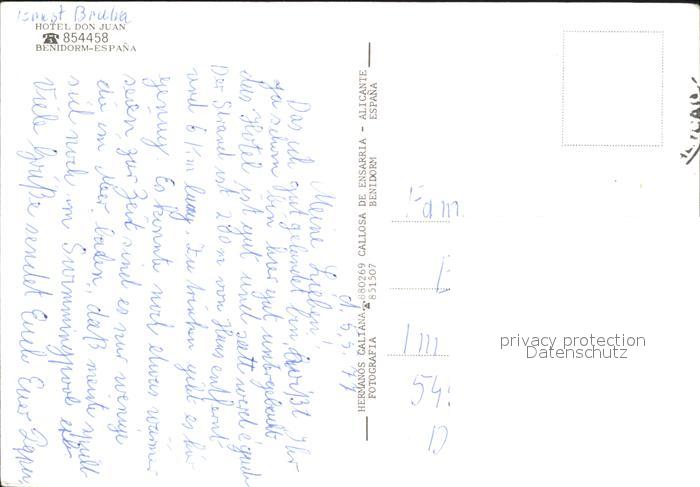 Ernst
HOTEL DON JUAN
☎ 854458
BENIDORM-ESPAÑA
d. 5.5.77
Meine Lieben!
Das ich gut gelandet bin, wißt Ihr
ja schon. Bin hier gut untergebracht
das Hotel ist gut und satt werd
Der Strand ist 200 m von Haus entfernt
und 6 km lang. Zu trinken gibt es hier
genug. Es könnte noch etwas wärmer
sein, zur Zeit sind es nur wenige
die im Meer baden, das meiste spielt
sich noch im Swimmingpool ab.
Viele Grüße sendet Euch Euer
HERMANOS GALIANA ☎ 880269 CALLOSA DE ENSARRIA - ALICANTE
FOTOGRAFIA ☎ 851507 BENIDORM ESPAÑA
Fam
E
Im
54
D
privacy protection
Datenschutz